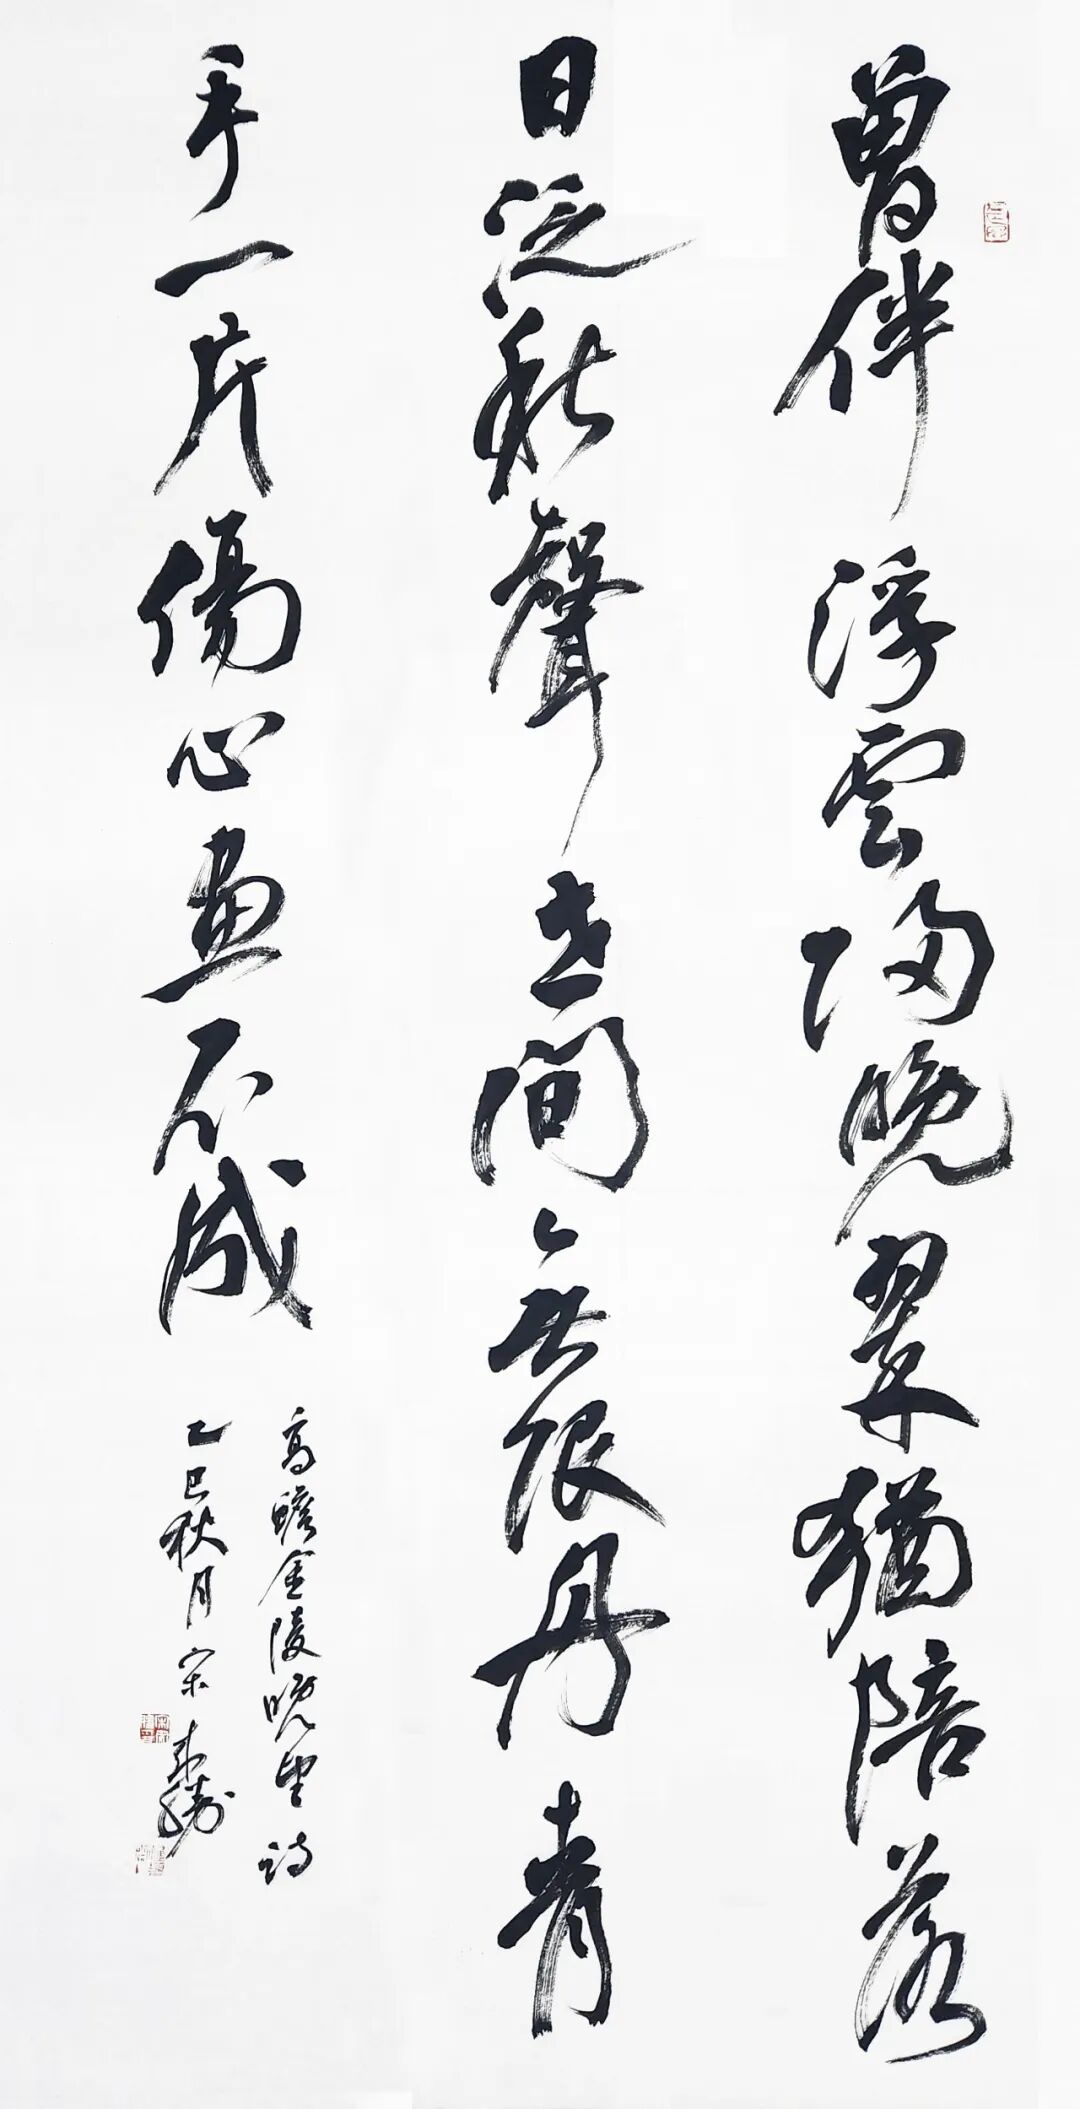 曾伴浮雲歸晚翠猶陪落
日泛秋聲世間無限丹青
手一片傷心畫不成
高蟾金陵晚望詩
乙巳秋月宋